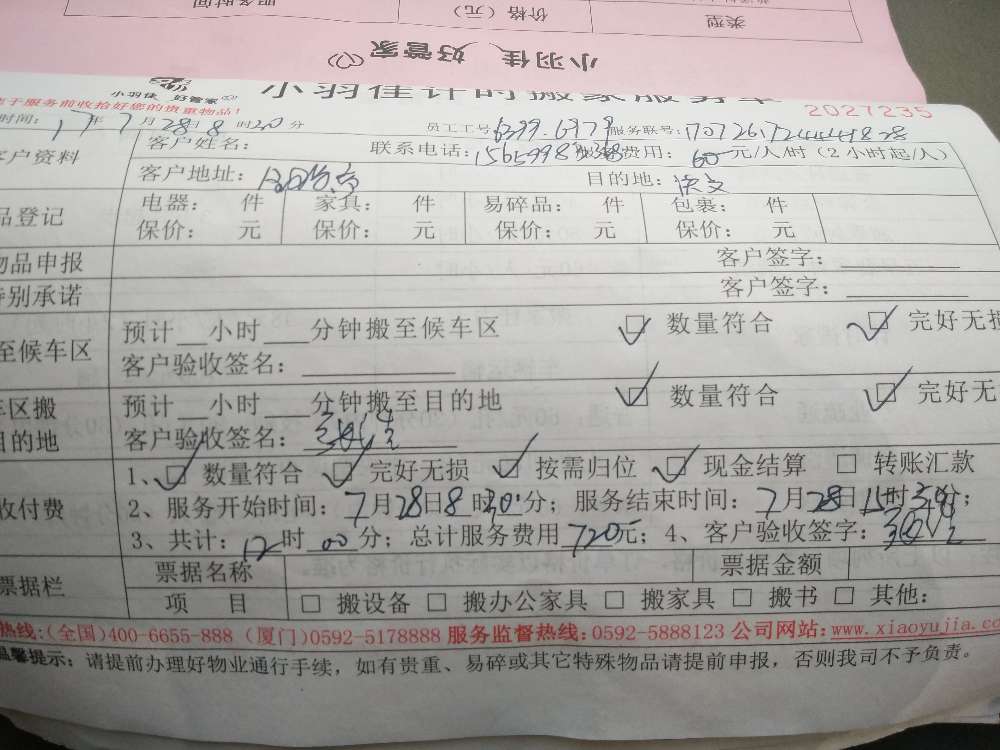 服务时间
价格（元）
类型
小羽佳 好管家
小羽佳 好管家
小羽佳计时搬家服务单
于服务前收拾好您的贵重物品！
2027235
时间：17年7月28日8时20分
员工工号：6399.6979
服务联号：
客户资料
客户姓名：
联系电话：
费用：60元/人/时（2小时起/人）
客户地址：
目的地：
品登记
电器： 件 家具： 件 易碎品： 件 包裹： 件
保价： 元 保价： 元 保价： 元 保价： 元
物品申报
客户签字：
特别承诺
客户签字：
至候车区
预计__小时___分钟搬至候车区 ☑ 数量符合 ☑ 完好无损
客户验收签名：
车区搬
目的地
预计__小时___分钟搬至目的地 ☑ 数量符合 ☑ 完好无
客户验收签名：
收付费
1、☑ 数量符合 ☑ 完好无损 ☑ 按需归位 ☑ 现金结算 □ 转账汇款
2、服务开始时间：7月28日8时30分；服务结束时间：7月28日15时30分；
3、共计：12时00分；总计服务费用720元；4、客户验收签字：
票据栏
票据名称
票据金额
项 目
□ 搬设备 □ 搬办公家具 □ 搬家具 □ 搬书 □ 其他：
热线：(全国)400-6655-888 (厦门)0592-5178888 服务监督热线：0592-5888123 公司网站：www.xiaoyujia.co
温馨提示：请提前办理好物业通行手续，如有贵重、易碎或其它特殊物品请提前申报，否则我司不予负责。